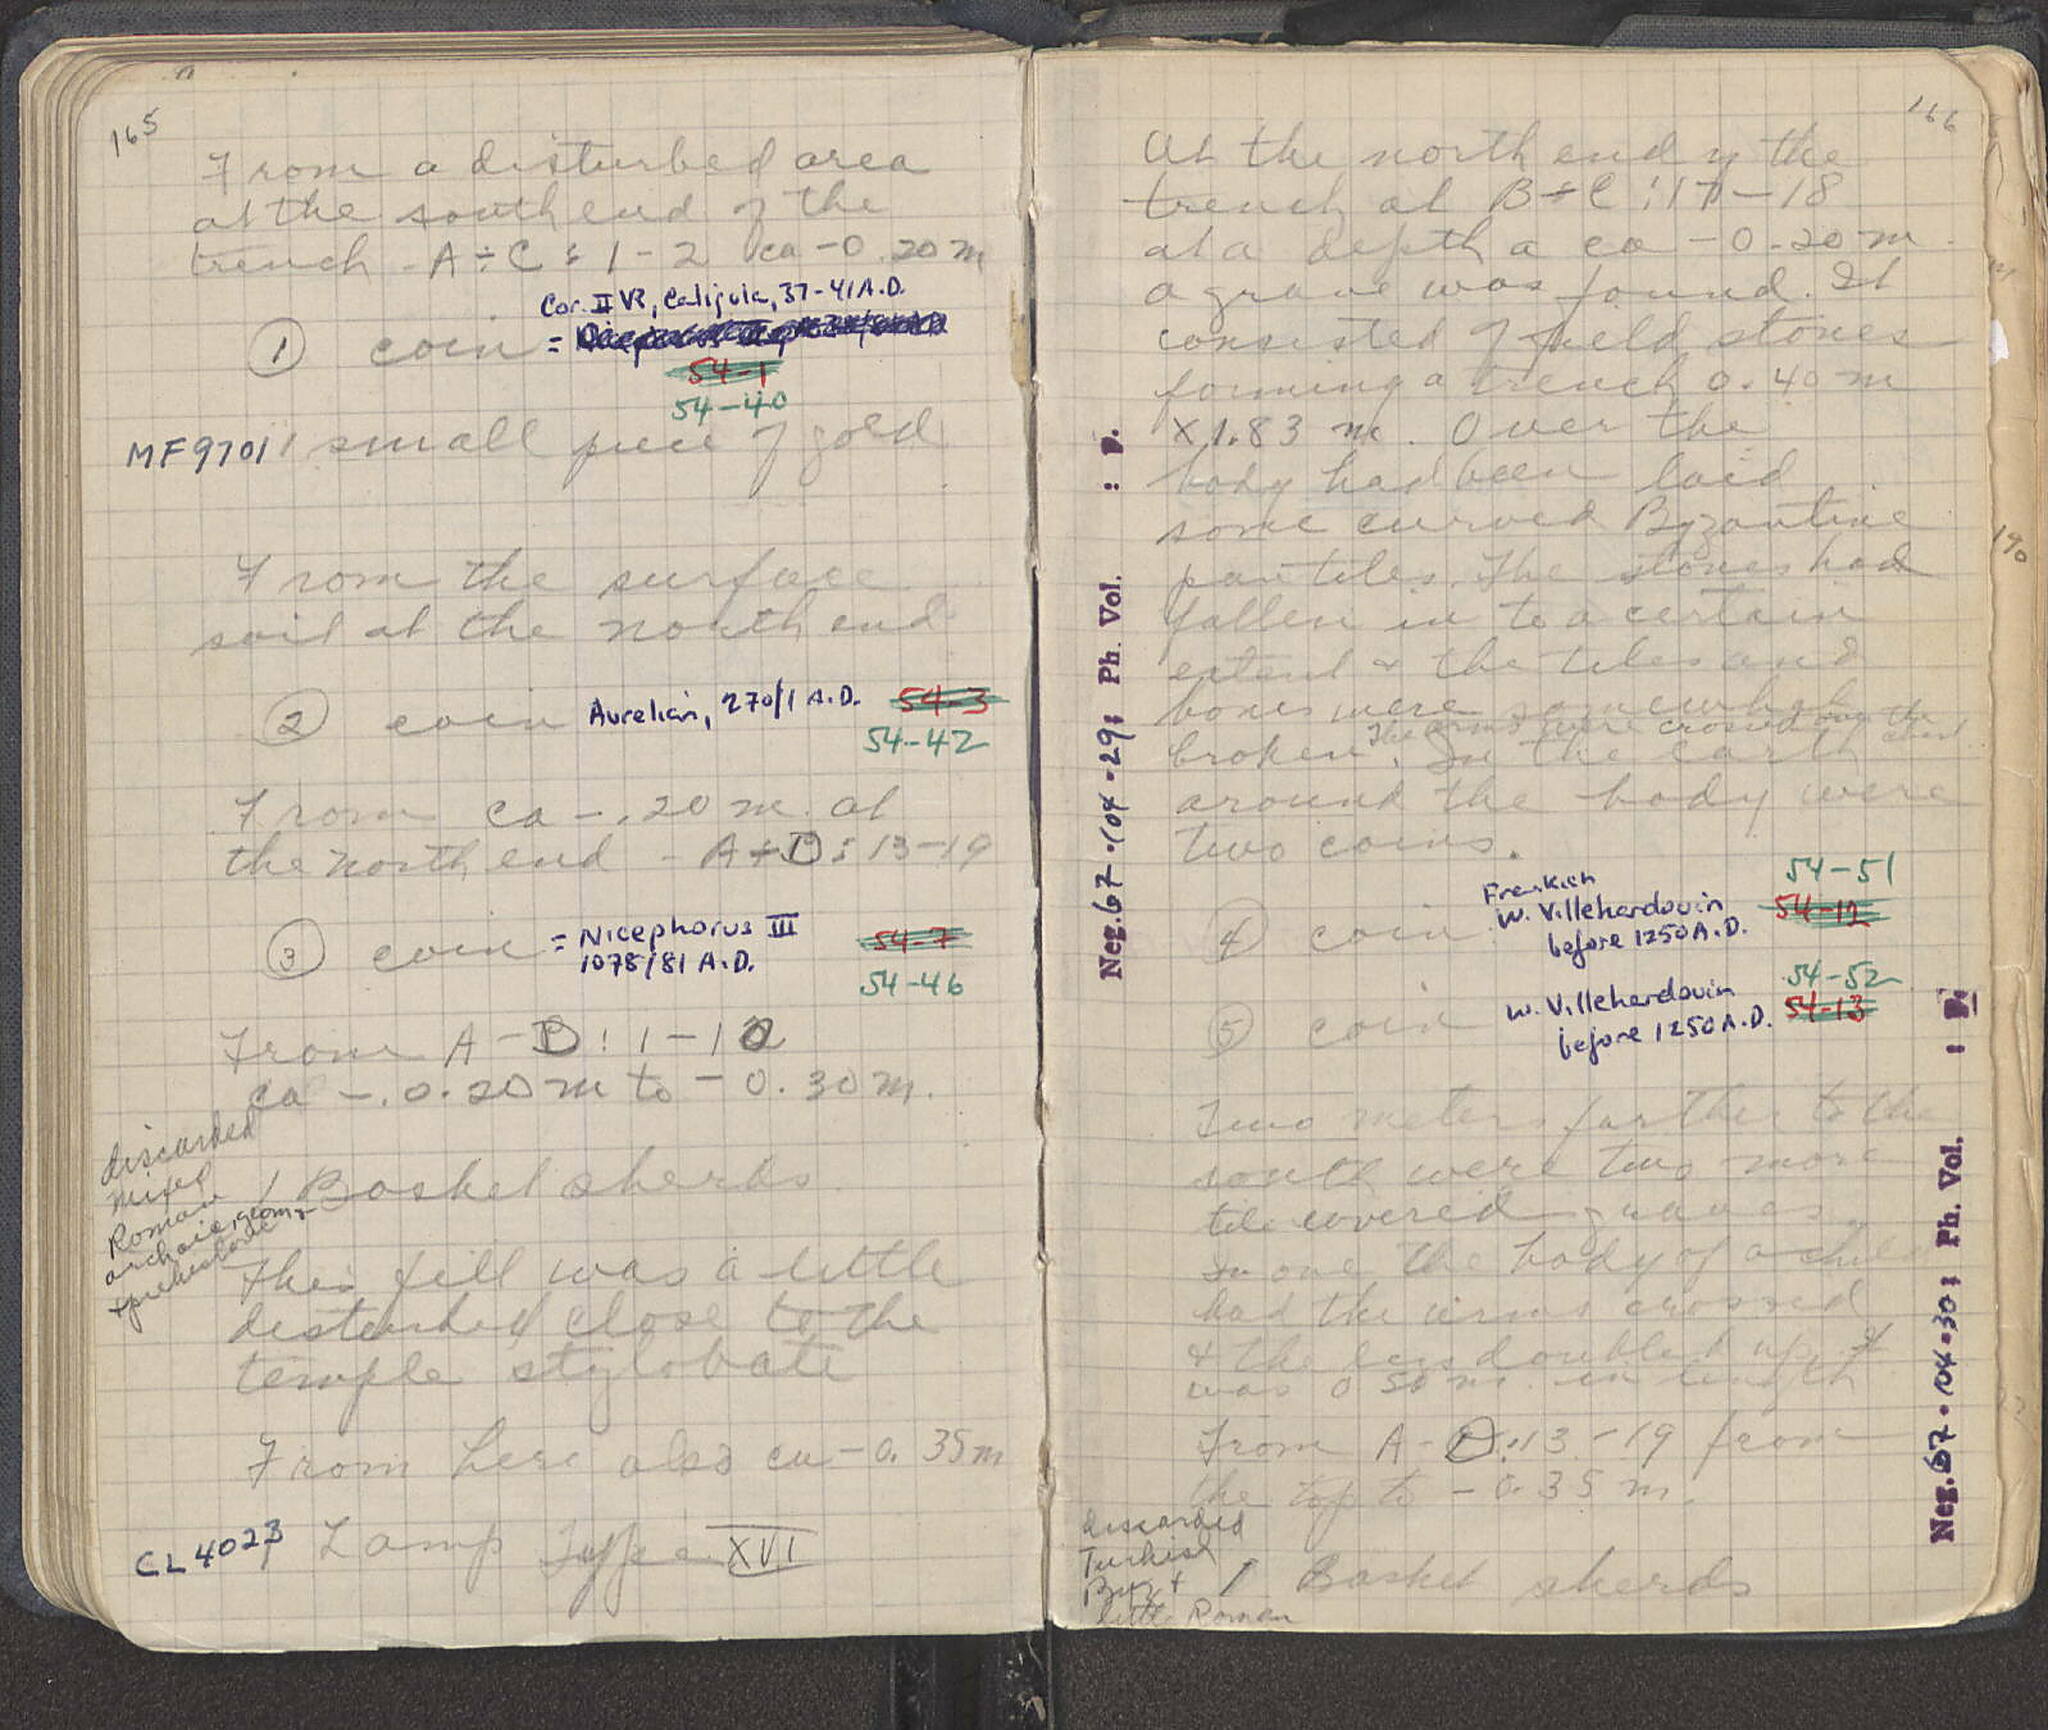 165
From a disturbed area
at the south end of the
trench - A ÷ C : 1-2 ca -0.20 m
Cor. II VR, Caligula, 37-41 A.D.
① coin =
54-1
54-40
MF9701 1 small piece of gold
From the surface
soil at the north end
② coin Aurelian, 270/1 A.D. 54-3
54-42
From ca -.20 m. at
the north end - A ÷ D : 13-19
③ coin = Nicephorus III 54-7
1078/81 A.D.
54-46
From A - D : 1-10
ca -.0.20 m to -0.30 m.
discarded
mixed
Roman
archaic, geom +
+ prehistoric
1 Basket sherds
This fill was a little
disturbed close to the
temple stylobate
From here also ca -0.35 m
CL 4023 1 Lamp Type XVI
166
At the north end of the
trench at B ÷ C : 17-18
at a depth a ca -0.20 m.
a grave was found. It
consisted of field stones
forming a trench 0.40 m
x 1.83 m. Over the
body had been laid
some curved Byzantine
pan tiles. The stones had
fallen in to a certain
extent & the tiles and
bones were somewhat
The arms were crossed over the chest
broken. In the earth
around the body were
two coins.
54-51
④ coin Frankish
W. Villehardouin 54-12
before 1250 A.D.
54-52
⑤ coin W. Villehardouin 54-13
before 1250 A.D.
Two meters further to the
south were two more
tile covered graves.
In one the body of a child
had the arms crossed
& the legs doubled up. It
was 0.50 m. in length
From A - D : 13-19 from
the top to -0.35 m.
discarded
Turkish
Byz +
little Roman
1 Basket sherds
Neg. 67-104-29; Ph. Vol. : p.
Neg. 67-104-30; Ph. Vol. : p.
190